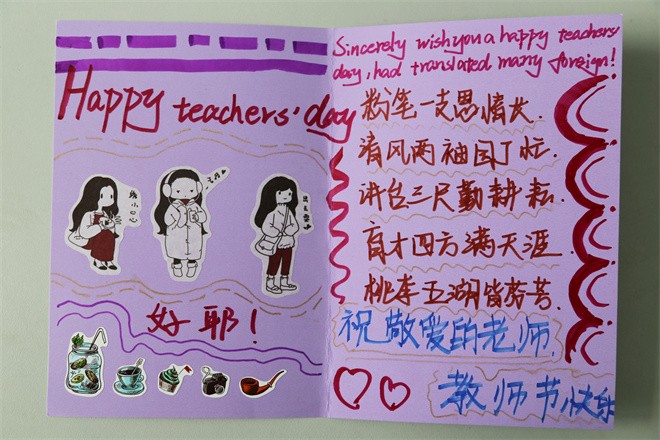 Happy teachers' day
好耶！
Sincerely wish you a happy teachers'
day, had translated many foreign!
粉笔一支思情长
清风两袖园丁忙
讲台三尺勤耕耘
育才四方满天涯
桃李五湖皆芬芳
祝敬爱的老师
教师节快乐